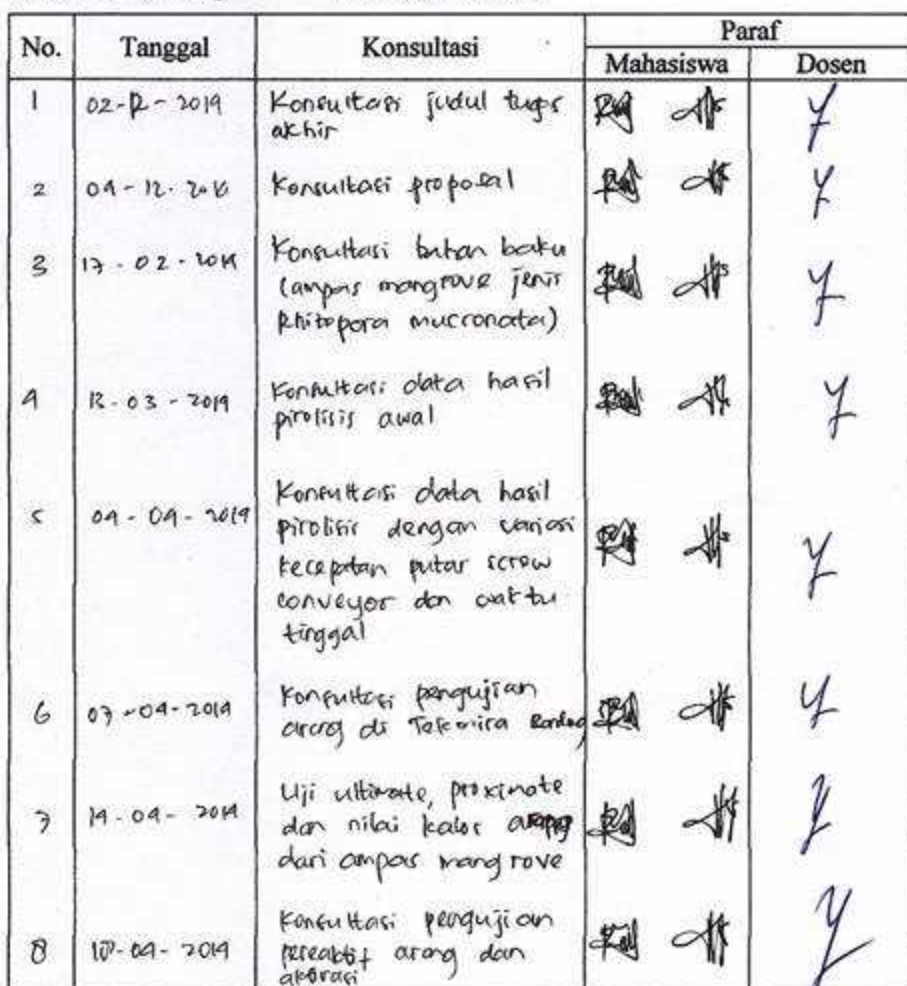 No. Tanggal Konsultasi Paraf
Mahasiswa Dosen
1 02-12-2019 Konsultasi judul tugas
akhir
2 04-12-2018 Konsultasi proposal
3 17-02-2019 Konsultasi bahan baku
(ampas mangrove jenis
Rhitopora mucronata)
4 13-03-2019 Konsultasi data hasil
pirolisis awal
5 04-04-2019 Konsultasi data hasil
pirolisis dengan variasi
kecepatan putar screw
conveyor dan waktu
tinggal
6 07-04-2019 Konsultasi pengujian
arang di Tekmira Bandung
7 14-04-2019 Uji ultimate, proximate
dan nilai kalor arang
dari ampas mangrove
8 -04-2019 Konsultasi pengujian
arang dan